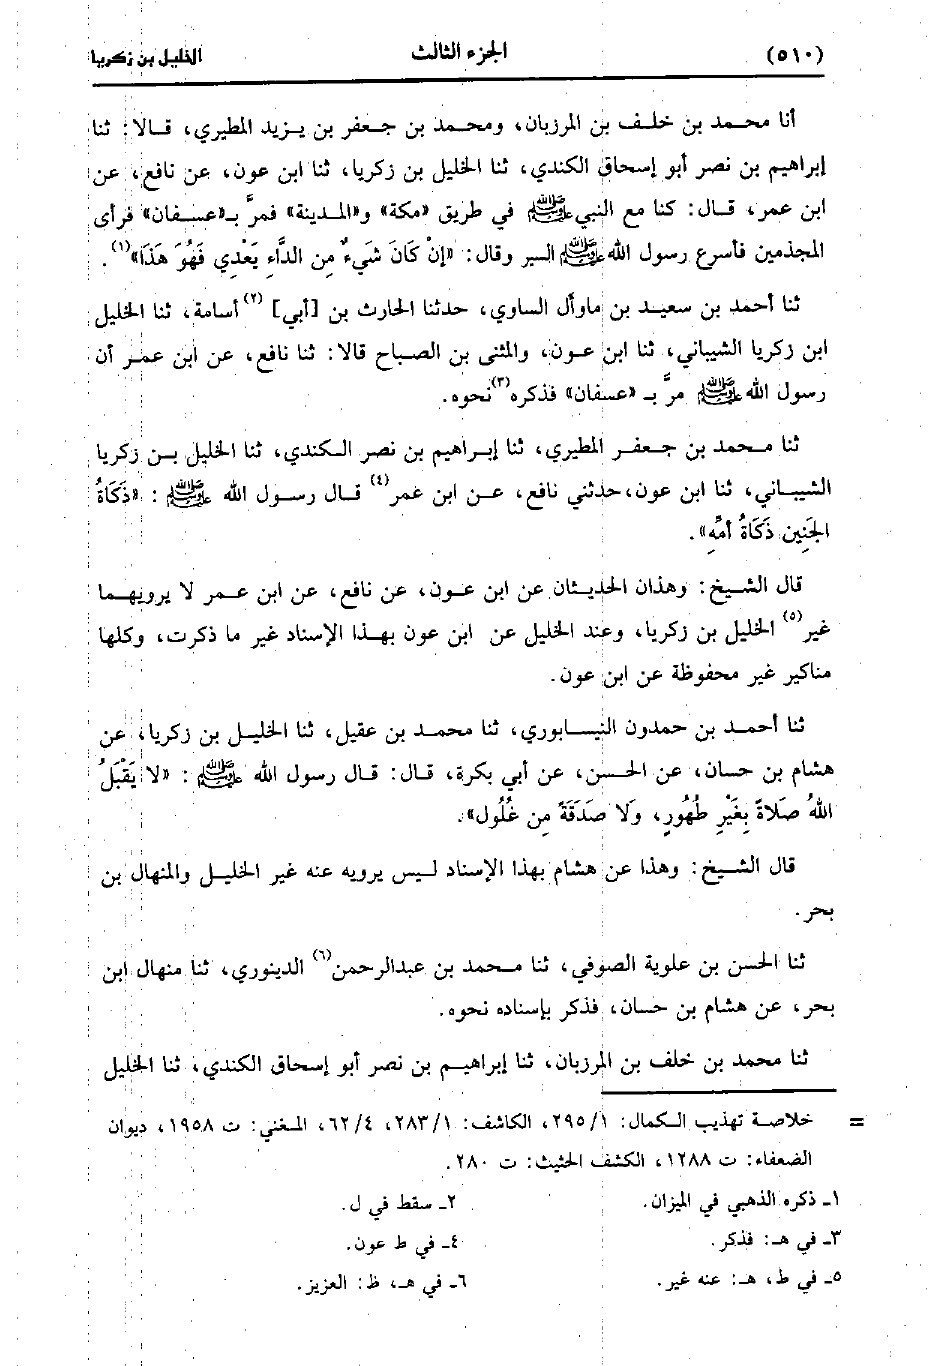 (٥١٠) الجزء الثالث الخليل بن زكريا
أنا محمد بن خلف بن المرزبان، ومحمد بن جعفر بن يزيد المطيري، قالا: ثنا
إبراهيم بن نصر أبو إسحاق الكندي، ثنا الخليل بن زكريا، ثنا ابن عون، عن نافع، عن
ابن عمر، قال: كنا مع النبي ﷺ في طريق «مكة» و«المدينة» فمرَّ بـ«عسفان» فرأى
المجذمين فأسرع رسول الله ﷺ السير وقال: «إِنْ كَانَ شَيءٌ مِن الدَّاءِ يَعْدِي فَهُوَ هَذَا»(١).
ثنا أحمد بن سعيد بن ماوأل الساوي، حدثنا الحارث بن [أبي](٢) أسامة، ثنا الخليل
ابن زكريا الشيباني، ثنا ابن عون، والمثنى بن الصباح قالا: ثنا نافع، عن ابن عمر أن
رسول الله ﷺ مرَّ بـ «عسفان» فذكره(٣) نحوه.
ثنا محمد بن جعفر المطيري، ثنا إبراهيم بن نصر الكندي، ثنا الخليل بن زكريا
الشيباني، ثنا ابن عون، حدثني نافع، عن ابن عمر(٤) قال رسول الله ﷺ : «ذَكَاةُ
الجَنِينِ ذَكَاةُ أُمِّهِ».
قال الشيخ: وهذان الحديثان عن ابن عون، عن نافع، عن ابن عمر لا يرويهما
غير(٥) الخليل بن زكريا، وعند الخليل عن ابن عون بهذا الإسناد غير ما ذكرت، وكلها
مناكير غير محفوظة عن ابن عون.
ثنا أحمد بن حمدون النيسابوري، ثنا محمد بن عقيل، ثنا الخليل بن زكريا، عن
هشام بن حسان، عن الحسن، عن أبي بكرة، قال: قال رسول الله ﷺ : «لا يَقْبَلُ
اللهُ صَلاةً بِغَيْرِ طُهُورٍ، وَلَا صَدَقَةً مِن غُلُول».
قال الشيخ: وهذا عن هشام بهذا الإسناد ليس يرويه عنه غير الخليل والمنهال بن
بحر.
ثنا الحسن بن علوية الصوفي، ثنا محمد بن عبدالرحمن(٦) الدينوري، ثنا منهال ابن
بحر، عن هشام بن حسان، فذكر بإسناده نحوه.
ثنا محمد بن خلف بن المرزبان، ثنا إبراهيم بن نصر أبو إسحاق الكندي، ثنا الخليل
= خلاصة تهذيب الكمال: ٢٩٥/١، الكاشف: ٢٨٣/١، ٦٢/٤، المغني: ت ١٩٥٨، ديوان
الضعفاء: ت ١٢٨٨، الكشف الحثيث: ت ٢٨٠.
١ـ ذكره الذهبي في الميزان. ٢ـ سقط في ل.
٣ـ في هـ: فذكر. ٤ـ في ط عون.
٥ـ في ط، هـ: عنه غير. ٦ـ في هـ، ظ: العزيز.